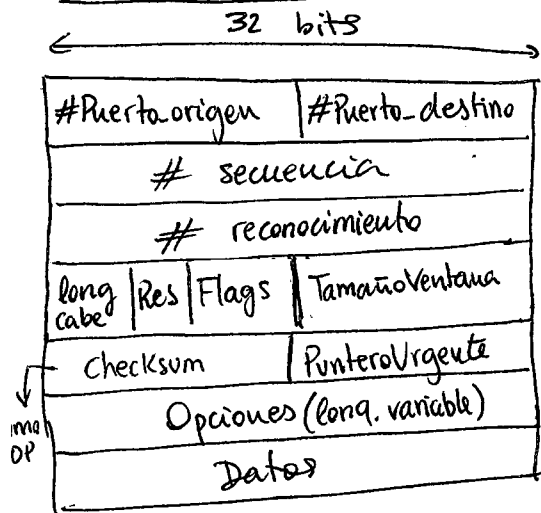 32 bits
#Puerto_origen #Puerto_destino
# secuencia
# reconocimiento
long cabe Res Flags TamañoVentana
checksum PunteroUrgente
Opciones (long. variable)
Datos